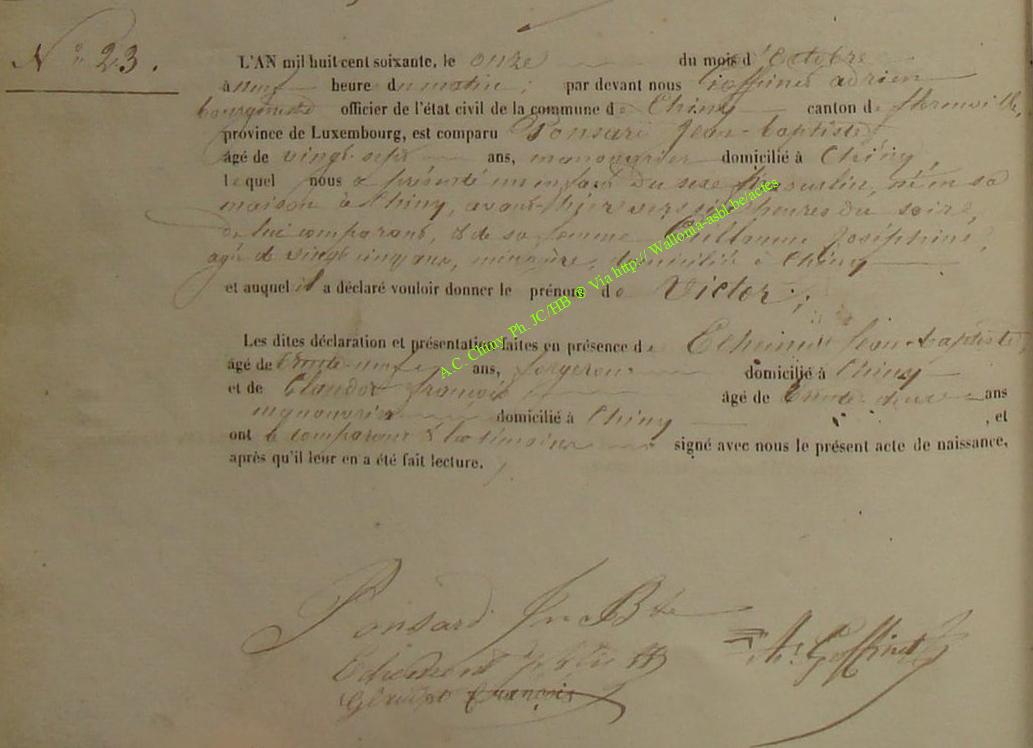 N° 23.
L'AN mil huit cent soixante, le onze du mois d'Octobre
à neuf heure du matin, par devant nous Goffinet adrien
bourgmestre officier de l'état civil de la commune de Chiny canton de florenville,
province de Luxembourg, est comparu Ponsard Jean-baptiste
âgé de vingt sept ans, manouvrier domicilié à Chiny,
lequel nous a présenté un enfant du sexe masculin, né en sa
maison à Chiny, avant hier vers six heures du soir,
de lui comparant, & de sa femme Guillaume Joséphine,
agée de vingt cinq ans, ménagère, domiciliée à Chiny
et auquel il a déclaré vouloir donner le prénom de Victor;
Les dites déclaration et présentation faites en présence de Jean-baptiste,
âgé de trente-neuf ans, forgeron domicilié à Chiny
et de françois âgé de trente deux ans
manouvrier domicilié à Chiny , et
ont le comparant & les témoins signé avec nous le présent acte de naissance,
après qu'il leur en a été fait lecture.
Ponsard Jn Bte
A. Goffinet
françois
A.C. Chiny Ph. JC/HB ® Via http://Wallonia-asbl.be/actes